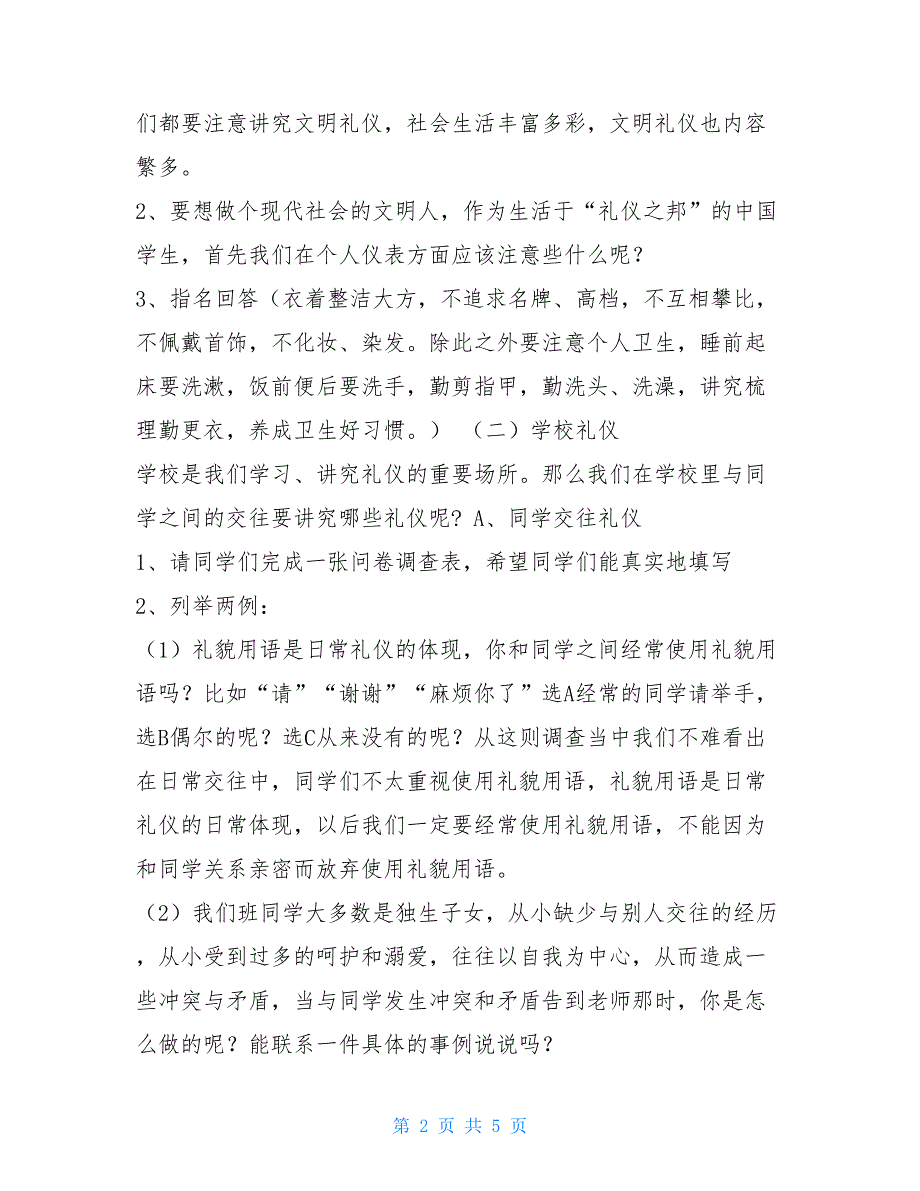 们都要注意讲究文明礼仪，社会生活丰富多彩，文明礼仪也内容
繁多。
2、要想做个现代社会的文明人，作为生活于“礼仪之邦”的中国
学生，首先我们在个人仪表方面应该注意些什么呢？
3、指名回答（衣着整洁大方，不追求名牌、高档，不互相攀比，
不佩戴首饰，不化妆、染发。除此之外要注意个人卫生，睡前起
床要洗漱，饭前便后要洗手，勤剪指甲，勤洗头、洗澡，讲究梳
理勤更衣，养成卫生好习惯。） （二）学校礼仪
学校是我们学习、讲究礼仪的重要场所。那么我们在学校里与同
学之间的交往要讲究哪些礼仪呢? A、同学交往礼仪
1、请同学们完成一张问卷调查表，希望同学们能真实地填写
2、列举两例：
（1）礼貌用语是日常礼仪的体现，你和同学之间经常使用礼貌用
语吗？比如“请”“谢谢”“麻烦你了”选A经常的同学请举手，
选B偶尔的呢？选C从来没有的呢？从这则调查当中我们不难看出
在日常交往中，同学们不太重视使用礼貌用语，礼貌用语是日常
礼仪的日常体现，以后我们一定要经常使用礼貌用语，不能因为
和同学关系亲密而放弃使用礼貌用语。
（2）我们班同学大多数是独生子女，从小缺少与别人交往的经历
，从小受到过多的呵护和溺爱，往往以自我为中心，从而造成一
些冲突与矛盾，当与同学发生冲突和矛盾告到老师那时，你是怎
么做的呢？能联系一件具体的事例说说吗？
第 2 页 共 5 页